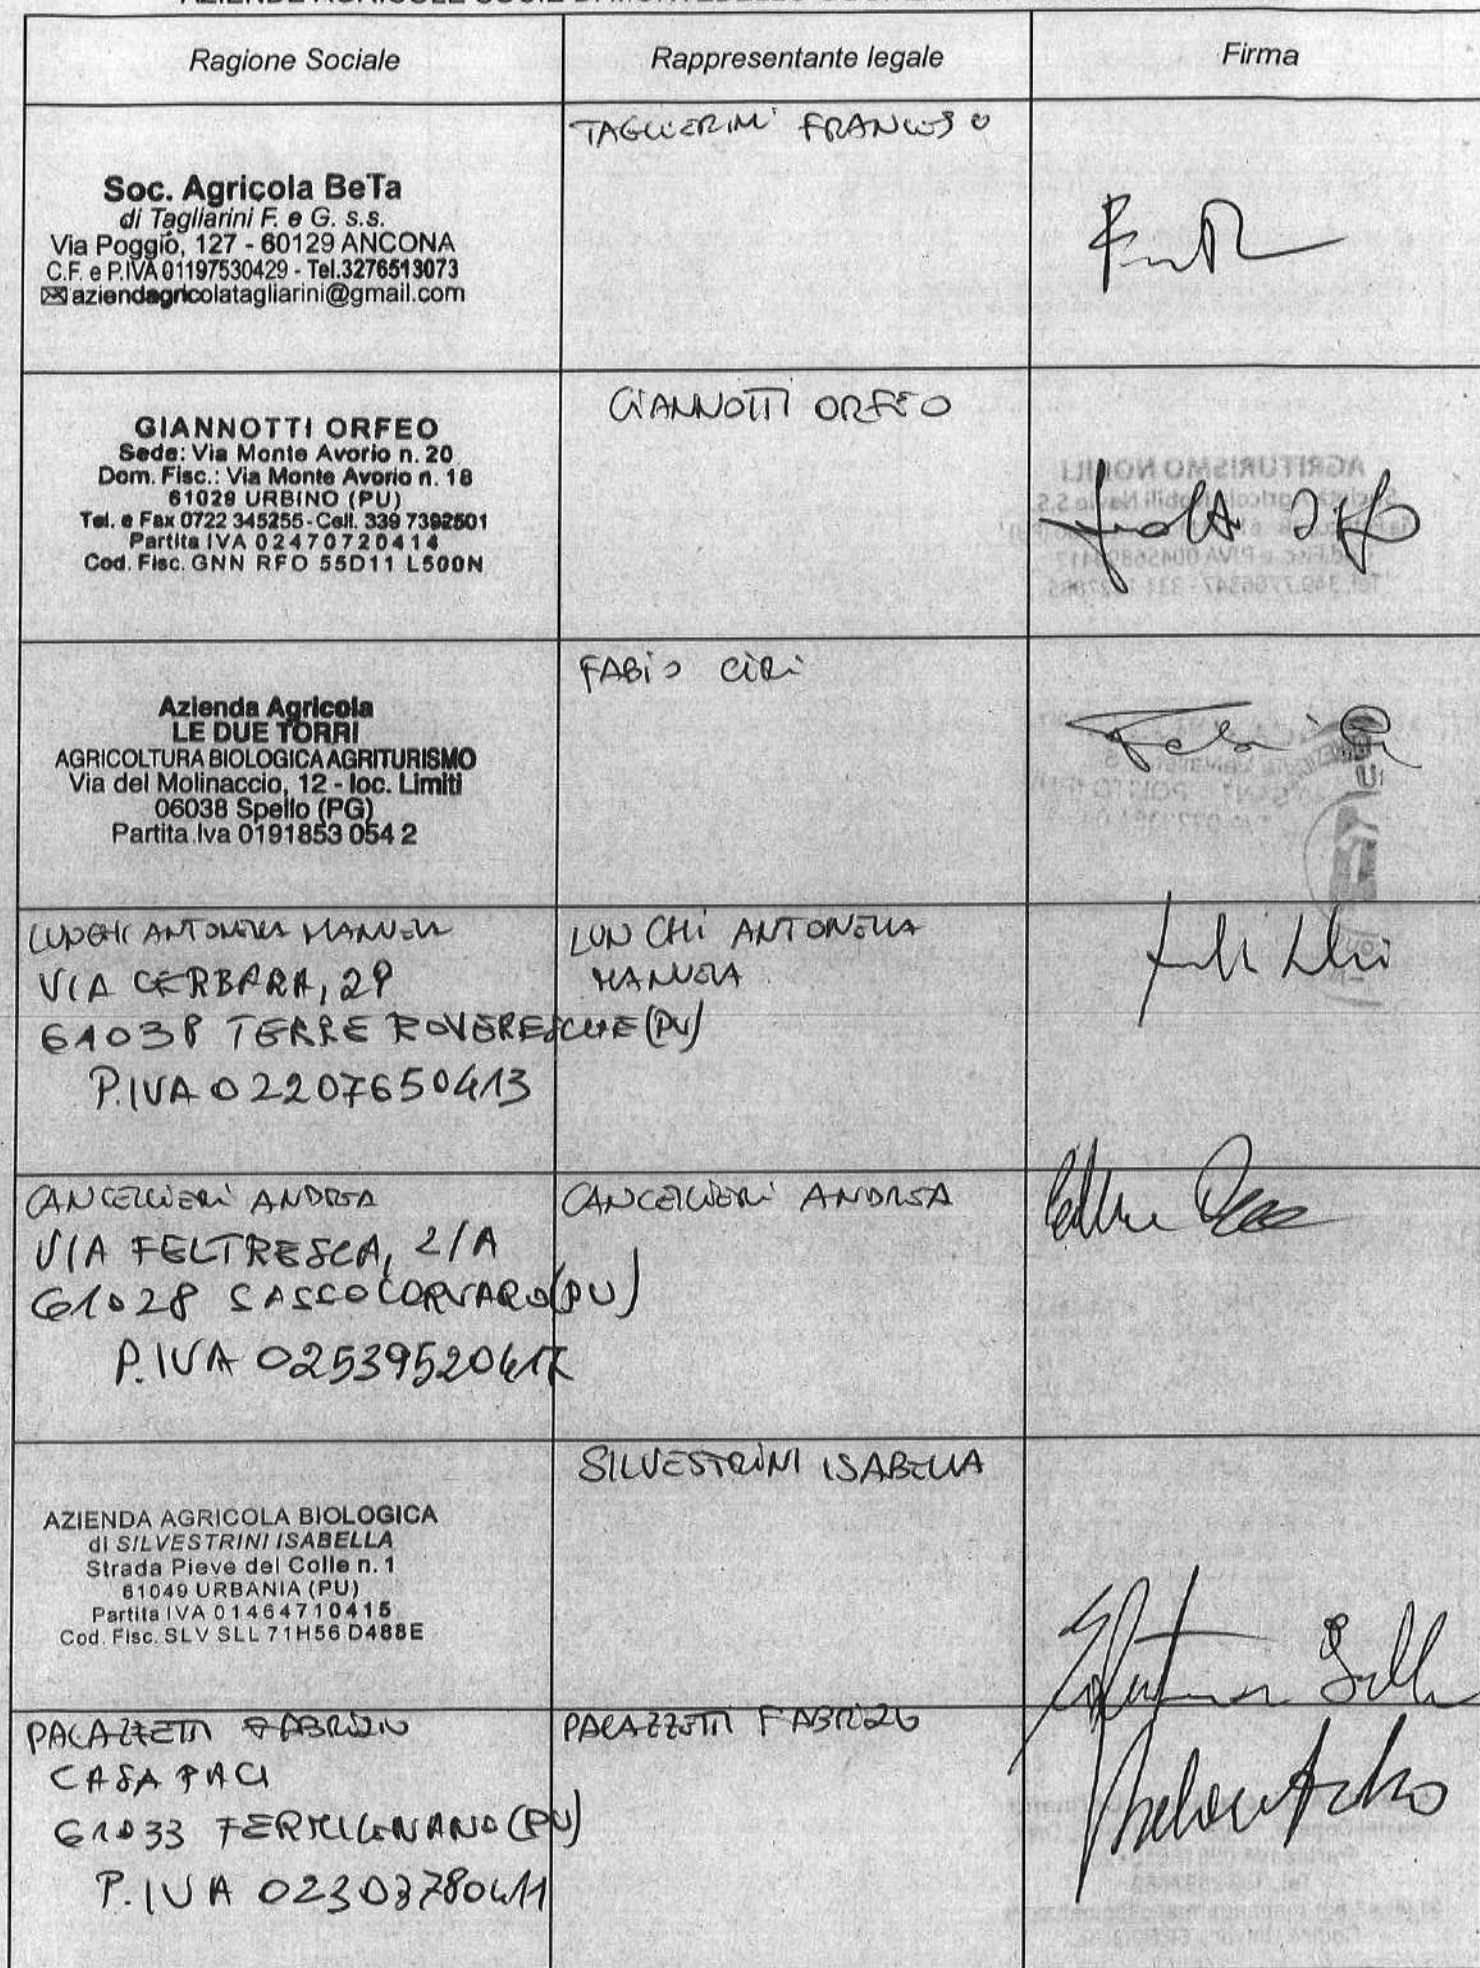 Ragione Sociale
Rappresentante legale
Firma
Soc. Agricola BeTa
di Tagliarini F. e G. s.s.
Via Poggio, 127 - 60129 ANCONA
C.F. e P.IVA 01197530429 - Tel.3276513073
✉ aziendagricolatagliarini@gmail.com
GIANNOTTI ORFEO
Sede: Via Monte Avorio n. 20
Dom. Fisc.: Via Monte Avorio n. 18
61029 URBINO (PU)
Tel. e Fax 0722 345255 - Cell. 339 7392501
Partita IVA 02470720414
Cod. Fisc. GNN RFO 55D11 L500N
GIANNOTTI ORFEO
Azienda Agricola
LE DUE TORRI
AGRICOLTURA BIOLOGICA AGRITURISMO
Via del Molinaccio, 12 - loc. Limiti
06038 Spello (PG)
Partita Iva 0191853 054 2
FABIO CIRI
ANTONELLA MANUELA
VIA CERBARA, 29
61038 TERRE ROVERESCHE (PU)
P.IVA 02207650413
LUNGHI ANTONELLA
MANUELA
CANCELLIERI ANDREA
VIA FELTRESCA, 2/A
61028 SASSOCORVARO (PU)
P.IVA 0253952041
CANCELLIERI ANDREA
AZIENDA AGRICOLA BIOLOGICA
di SILVESTRINI ISABELLA
Strada Pieve del Colle n. 1
61049 URBANIA (PU)
Partita IVA 01464710415
Cod. Fisc. SLV SLL 71H56 D488E
SILVESTRINI ISABELLA
PALAZZETTI FABRIZIO
CASA PACI
61033 FERMIGNANO (PU)
P.IVA 02303780411
PALAZZETTI FABRIZIO